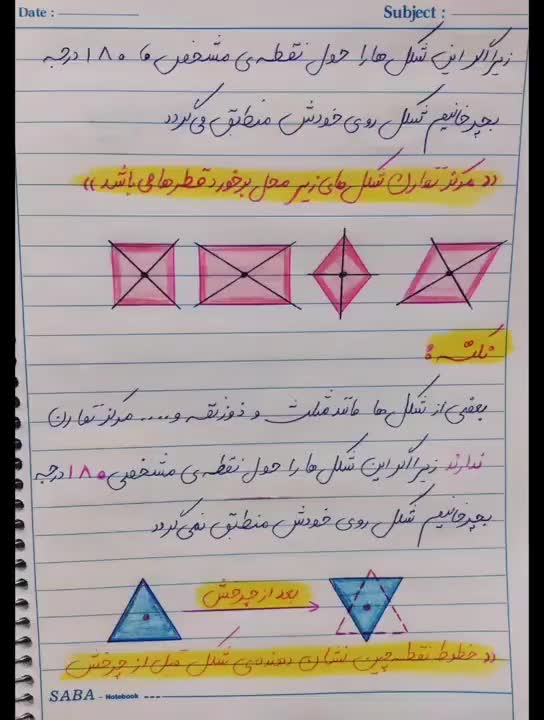 Date :
Subject :
زیرا اگر این شکل ها را حول نقطه ی مشخص ما ۱۸۰ درجه
بچرخانیم شکل روی خودش منطبق می گردد
« مرکز تقارن شکل های زیر محل برخورد قطر ها می باشد »
نکته :
بعضی از شکل ها مانند مثلث و ذوزنقه و .... مرکز تقارن
ندارند زیرا اگر این شکل ها را حول نقطه ی مشخص ۱۸۰ درجه
بچرخانیم شکل روی خودش منطبق نمی گردد
بعد از چرخش
« خطوط نقطه چین نشان دهنده ی شکل قبل از چرخش
SABA - Notebook